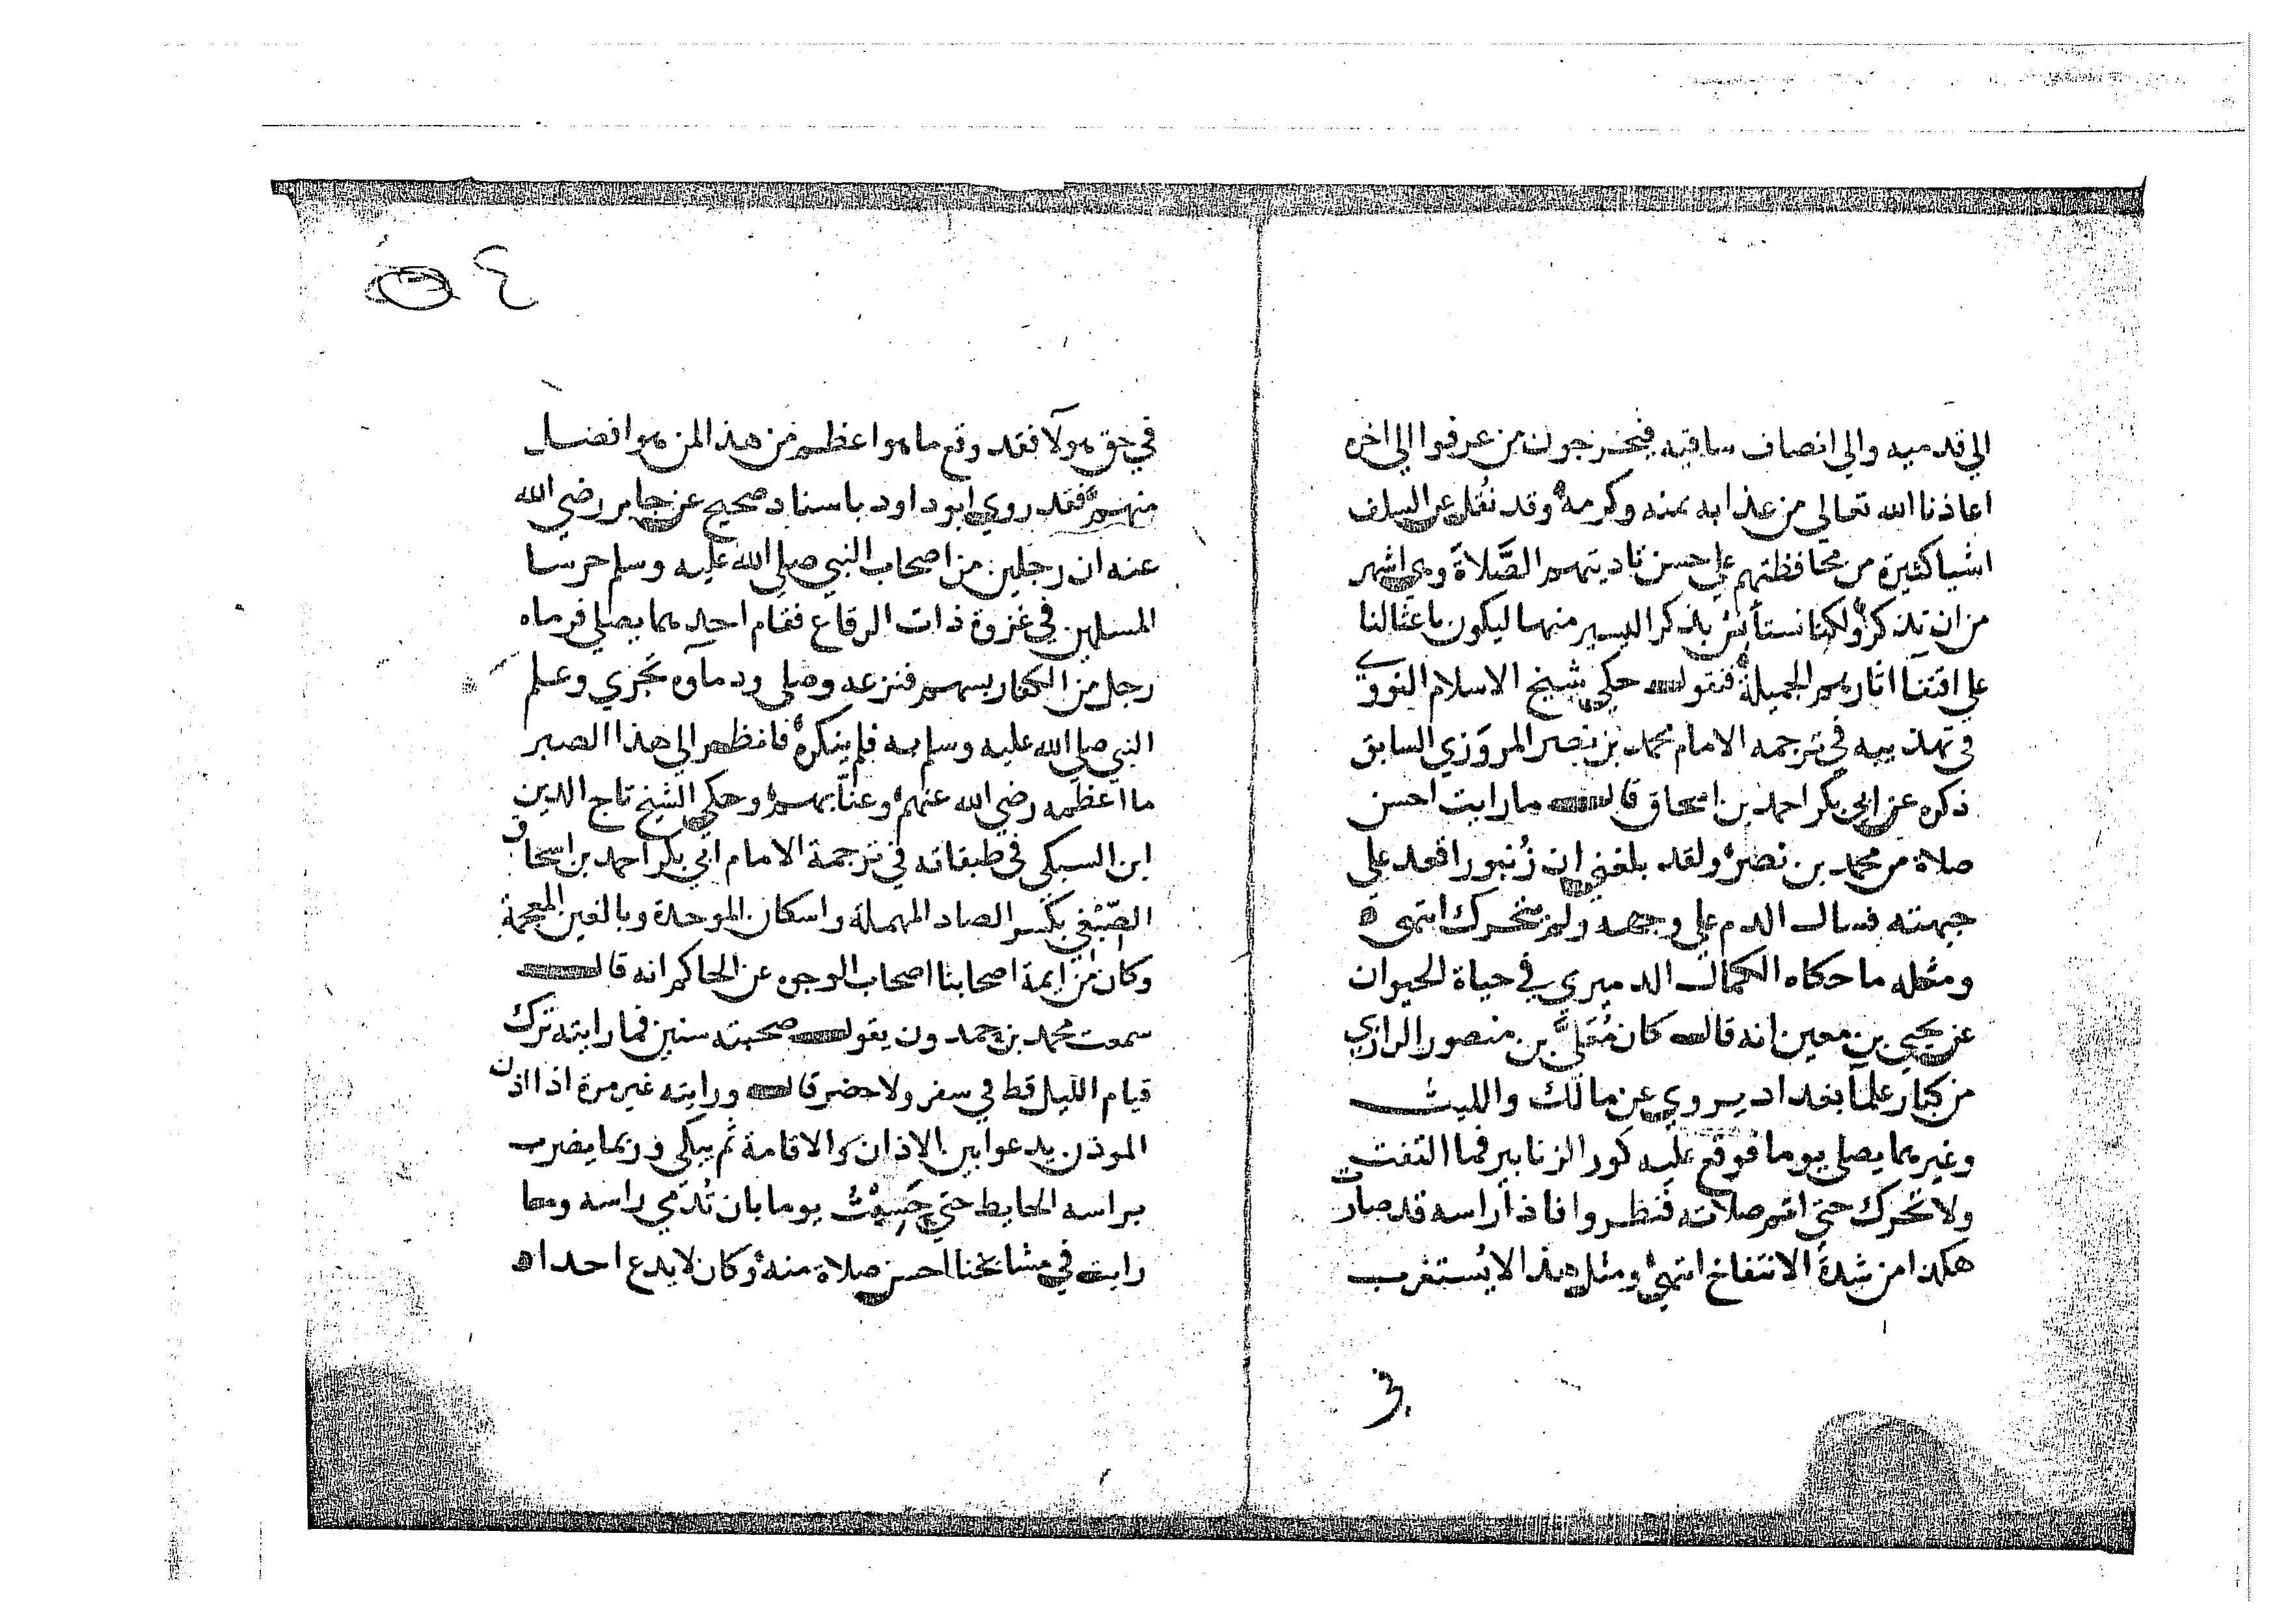 الي قدميه والي انصاف ساقيه فيخرجون من عرفوا الي اخره
اعاذنا الله تعالي من عذابه بمنه وكرمه وقد نُقل عن السلف
اشيا كثيرة من محافظتهم علي حسن تاديتهم الصَّلاة وهي اشهر
من ان تذكر ولكنا نستأنس بذكر اليسير منها ليكون باعثا لنا
علي اقتفآ اثارهم الجميلة فنقول حكي شيخ الاسلام النووي
في تهذيبه في ترجمه الامام محمد بن نصر المروَزي السابق
ذكره عن ابي بكر احمد بن اسحاق قال ما رايت احسن
صلاة من محمد بن نصر ولقد بلغني ان زُنبورا قعد علي
جبهته فسال الدم علي وجهه ولم يتحرك انتهى ه
ومثله ما حكاه الكمال الدميري في حياة الحيوان
عن يحيي بن معين انه قال كان مُعَلَّي بن منصور الرازي
من كبار علمآ بغداد يروي عن مالك والليث
وغيرهما يصلي يوما فوقع عليه كور الزنابير فما التفت
ولا تحرك حتي اتم صلاته فنظروا فاذا راسه قد صارت
هكذا من شدة الانتفاخ انتهي ومثل هذا لا يُستغرب
3
٤
في حق هولآ فقد وقع ما هو اعظم من هذا لمن هو افضل
منهم فقد روي ابو داود باسناد صحيح عن جابر رضي الله
عنه ان رجلين من اصحاب النبي صلي الله عليه وسلم حرسا
المسلمين في غزوة ذات الرقاع فقام احدهما يصلي فرماه
رجل من الكفار بسهم فنزعه وصلي ودمآوه تجري وعلم
النبي صلي الله عليه وسلم به فلم ينكره فانظر الي هذا الصبر
ما اعظمه رضي الله عنهم وعنّا بهم وحكي الشيخ تاج الدين
ابن السبكي في طبقاته في ترجمة الامام ابي بكر احمد بن اسحاق
الصِّبْغي بكسر الصاد المهملة واسكان الموحدة وبالغين المعجمة
وكان من ايمة اصحابنا اصحاب الوجوه عن الحاكم انه قال
سمعت محمد بن حمدون يقول صحبته سنين فما رايته ترك
قيام الليل قط في سفر ولا حضر قال ورايته غير مرة اذا اذن
الموذن يدعوا بين الاذان والاقامة ثم يبكي وربما يضرب
براسه الحايط حتي حَسِبْتُ يوما بان تُدمي راسه وما
رايت في مشايخنا احسن صلاة منه وكان لا يدع احدا ه